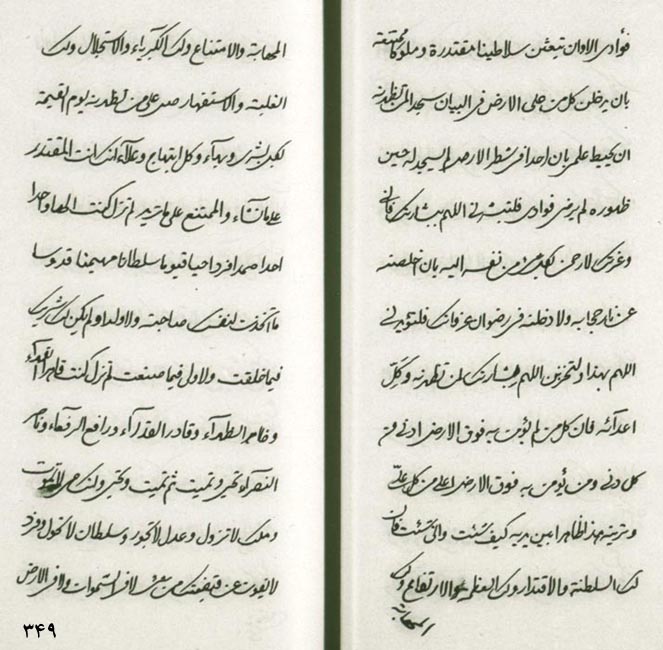 فؤادی الاوان تبعثن سلاطینا مقتدرة و ملوکا ممتنعة
بان یدخلن کل من علی الارض فی البیان سیجد المن تظهرنه
ان یحیط علمی بان احدا فی شطر الارض لم یسجد له حین
ظهوره لم یرض فوادی فلتبشرنی اللهم ببشارتک فانی
وعزتک لارحن کل من نفسه الیه بان اخلصنه
عن نار حجابه ولادخلنه فی رضوان عرفانک فلتؤیدنی
اللهم بهذا ولتخزین اللهم بشارتک لمن تظهرنه وکل
اعدائه فان کل من لم یؤمن به فوق الارض ادنی من
کل دنی ومن یؤمن به فوق الارض اعلی من کل علی
وترینه هذا ظاهرا بین یدیه کیف شئت وانی شئت فان
لک السلطنة والاقتدار ولک العظمة والارتفاع ولک
المهابة
المهابة والامتناع ولک الکبریاء والاستجلال ولک
الغلبة والاستقهار صل علی من تظهرنه یوم القیمة
بکل بشری وبهاء وکل ابتهاج وعلاء انک انت المقتدر
علی ما تشاء والممتنع علی ما ترید لم تزل کنت الها واحدا
احدا صمدا فردا حیا قیوما سلطانا مهیمنا قدوسا
ما اتخذت لنفسک صاحبة ولا ولدا ولم یکن لک شریک
فیما خلقت ولا ولی فیما صنعت لم تزل کنت قاهر القهراء
وظاهر الظهراء وقادر القدراء ورافع الرفعاء وناصر
النصراء تحیی وتمیت ثم تمیت وتحیی وانک حی لا تموت
وملک لا تزول وعدل لا تجور وسلطان لا تحول وفرد
لا یفوت عن قبضتک من شیء لا فی السموات ولا فی الارض
۳۴۹